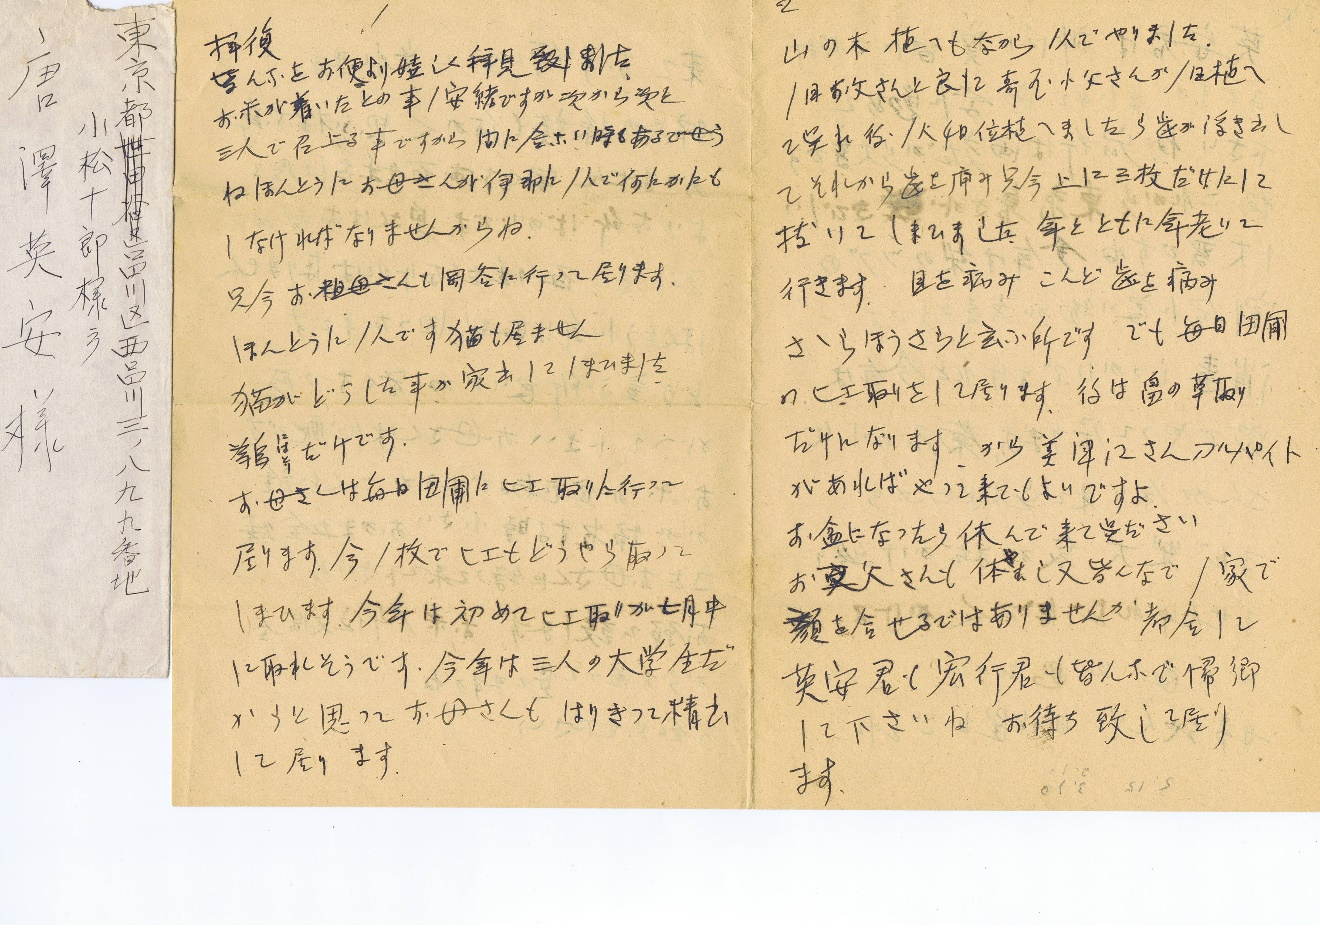 東京都品川区西品川三ノ八九九番地
小松十郎様方
唐澤英安様
拝復
皆んなをお便り嬉しく拝見致しました
お米が着いたとの事/安緒ですが次から次と
三人で召上る事ですから間に合ない時もあるでせう
ねほんとうにお母さんが伊那に/人で何にかにも
しなければなりませんからね.
只今お祖母さんも岡谷に行って居ります.
ほんとうに/人です猫も居ません
猫がどうした事か家出してしまひました
鶏ばかりだけです.
お母さんは毎日田圃にヒエ取りに行って
居ります.今/枚でヒエもどうやら取って
しまひます 今年は初めてヒエ取りが七月中
に取れそうです.今年は三人の大学生だ
からと思って お母さんも はりきって精出
して居ります.
2
山の木植へもながら/人でやりました.
/日お父さんと良に 小父さんが/日植へ
て呉れ後/人40位植へましたら歯が浮き出し
てそれから歯を痛み只今上に三枚だけにして
抜いてしまひました 年とともに年老いて
行きます. 目を病み こんど歯を病み
さらほうさらと云ふ所です でも毎日田圃
のヒエ取りをして居ります. 後は畠の草取り
だけになります.から美津江さんアルバイト
があればやって来てもよいですよ
お盆になったら休んで来て呉ださい
お父さんも休まし又皆んなで/家で
顔を合せるではありませんか 都合して
英安君も宏行君も皆んなで帰郷
して下さいね お待ち致して居り
ます.